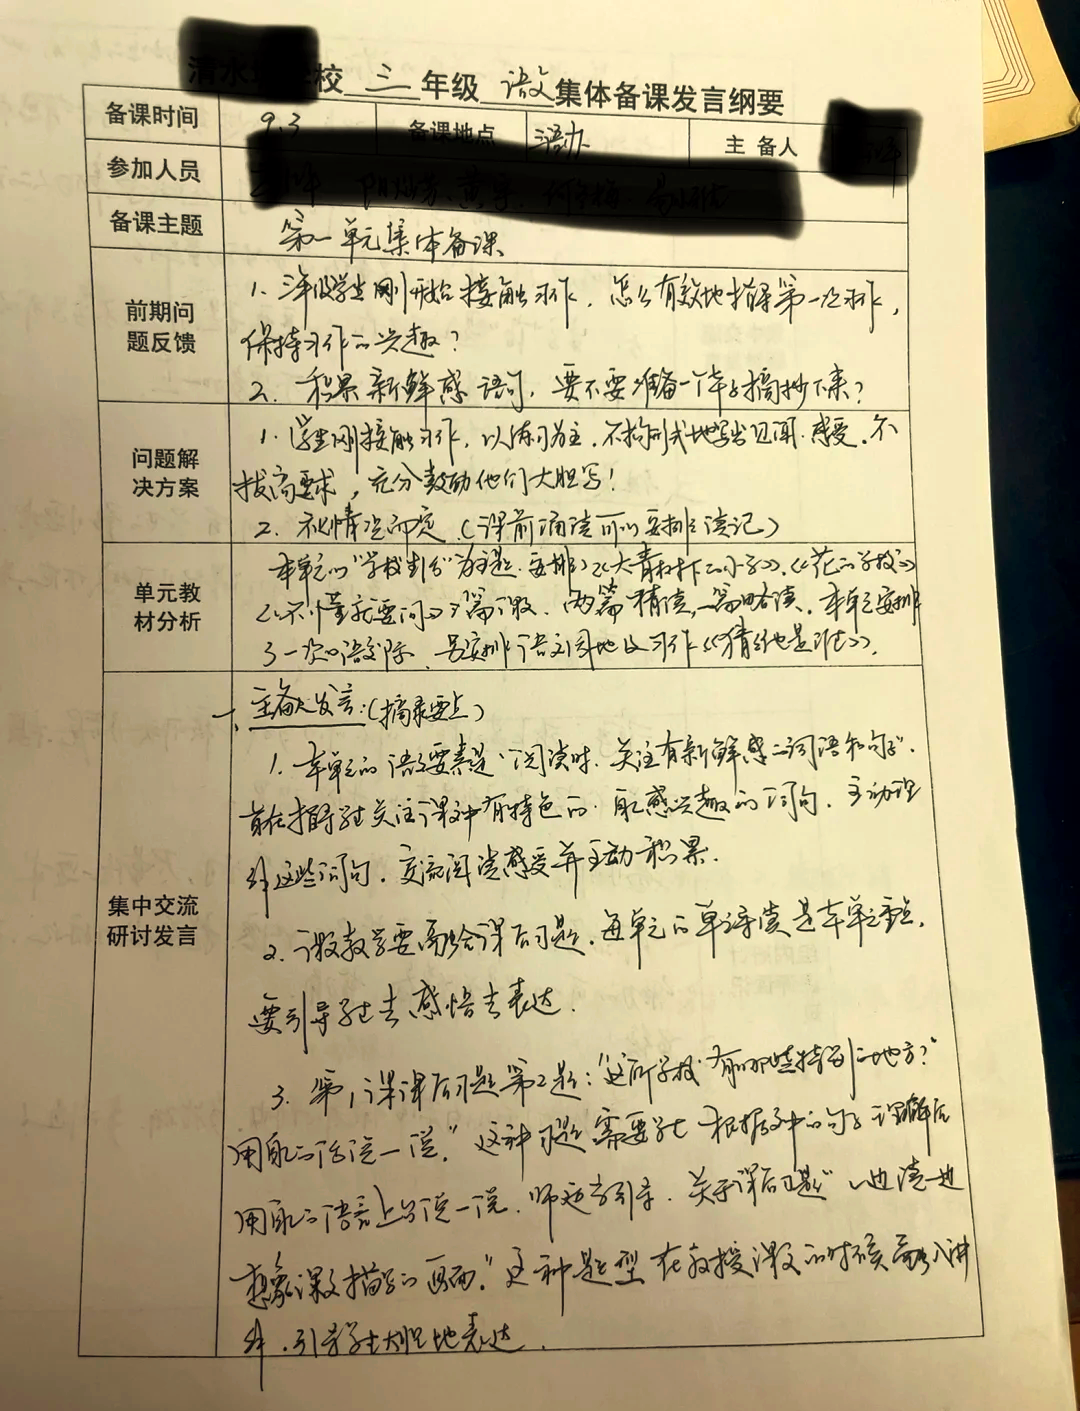 校 三 年级 语文 集体备课发言纲要
备课时间 9.3 备课地点 三语办 主备人
参加人员
备课主题 第一单元集体备课
前期问题反馈
1. 三年级学生刚开始接触习作，怎么有效地指导第一次习作，
保持习作的兴趣？
2. 积累新鲜感语句，要不要准备一个本子摘抄下来？
问题解决方案
1. 学生刚接触习作，以练习为主，不拘形式地写出见闻、感受，不
拔高要求，充分鼓励他们大胆写！
2. 视情况而定（课前诵读可以安排读记）
单元教材分析
本单元以“学校生活”为主题，安排了《大青树下的小学》、《花的学校》
《不懂就要问》3篇课文，两篇精读，一篇略读，本单元安排
了一次口语交际，另安排语文园地及习作《猜猜他是谁》。
集中交流研讨发言
一、主备人发言：（摘录要点）
1. 本单元的语文要素是“阅读时，关注有新鲜感的词语和句子”，
旨在指导学生关注课文中有特色的、自己感兴趣的词句，主动理
解这些词句，交流阅读感受并主动积累。
2. 课文教学要结合课后习题，每单元的单元导读是本单元重点，
要引导学生去感悟去表达。
3. 第1课课后习题第2题：“这所学校有哪些特别的地方？”
用自己的话说一说。”这种习题需要学生根据文中的句子理解后
用自己的语言上台说一说，师适当引导。关于课后习题“边读一边
想象课文描写的画面。”这种题型在教授课文的时候融入讲
解，引导学生大胆地表达。